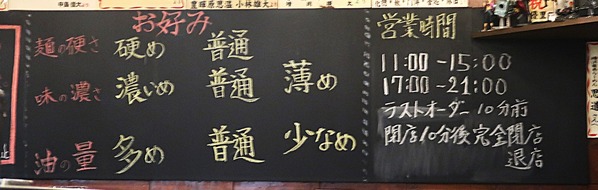 お好み
麺の硬さ 硬め 普通
味の濃さ 濃いめ 普通 薄め
油の量 多め 普通 少なめ
営業時間
11:00~15:00
17:00~21:00
ラストオーダー 10分前
閉店10分後完全閉店
退店